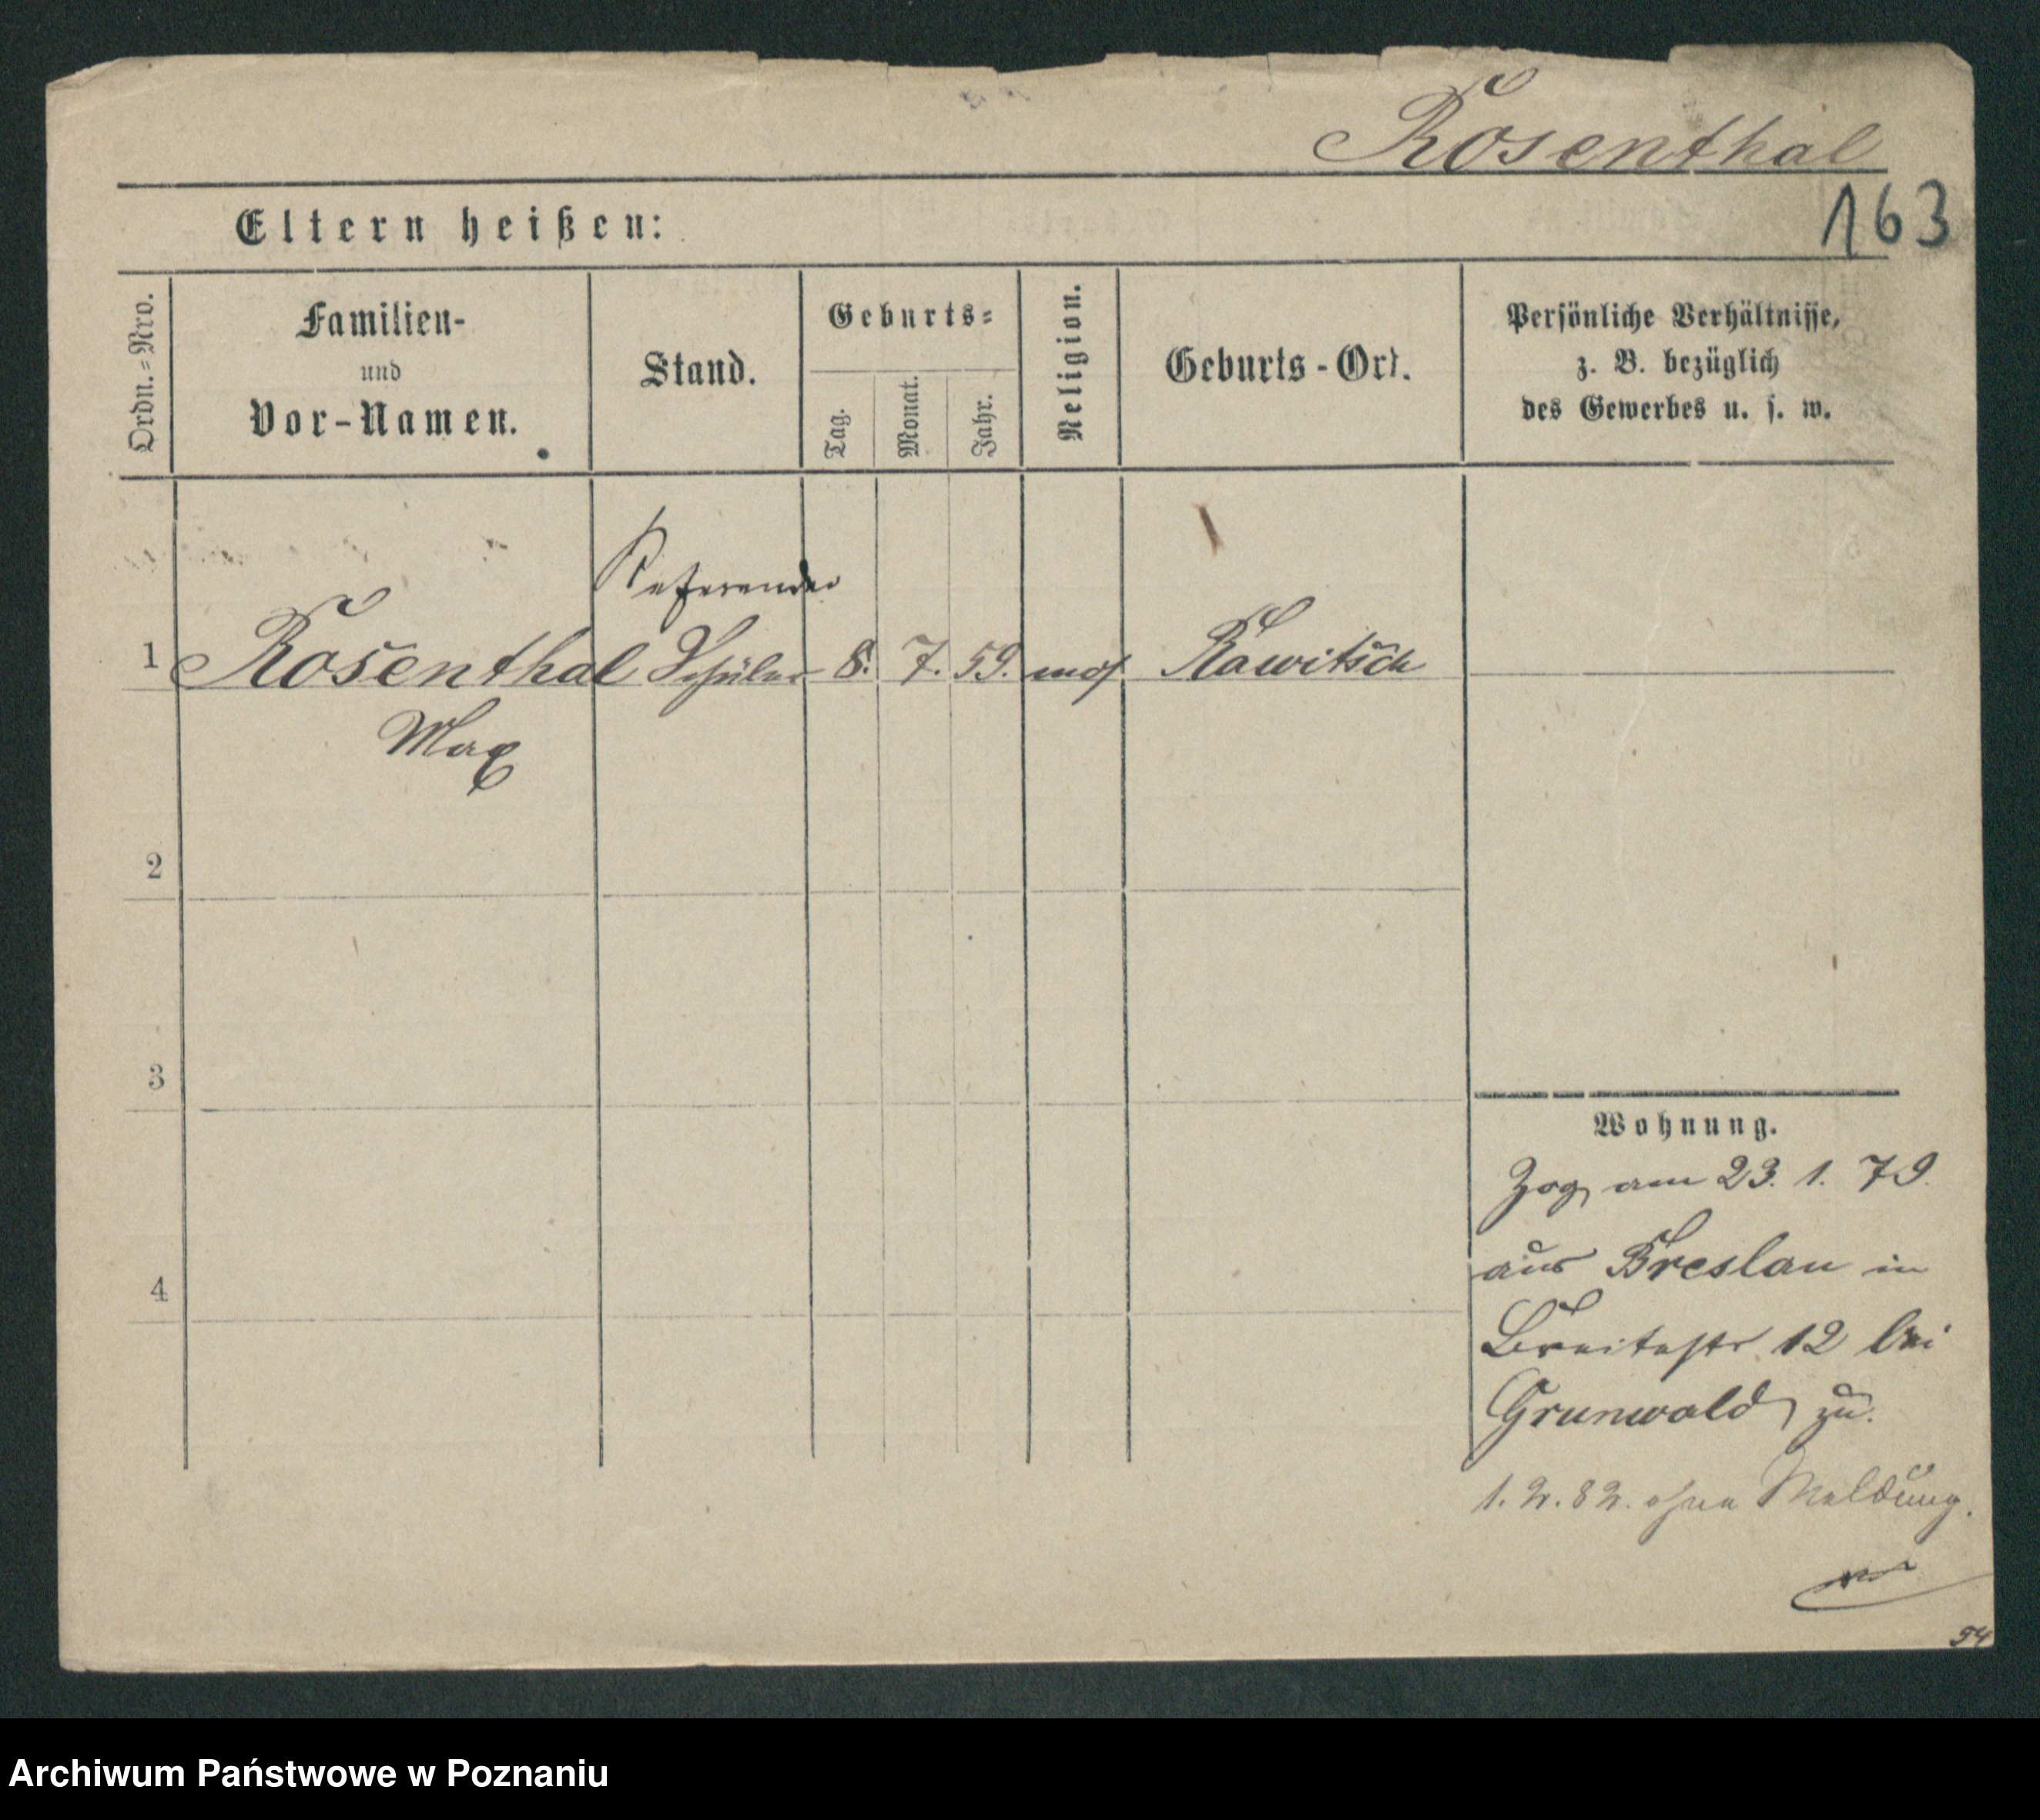 Rosenthal
163
Eltern heißen:
Ordn.=Nro.
Familien-
und
Vor-Namen.
Stand.
Geburts=
Tag.
Monat.
Jahr.
Religion.
Geburts-Ort.
Persönliche Verhältnisse,
z. B. bezüglich
des Gewerbes u. s. w.
Referendar
1 Rosenthal Schüler 8. 7. 59. mos. Rawitsch
Max
2
3
4
Wohnung.
Zog am 23. 1. 79.
aus Breslau in
Breitestr 12 bei
Grunwald zu.
1. 2. 82. ohne Meldung.
54
Archiwum Państwowe w Poznaniu